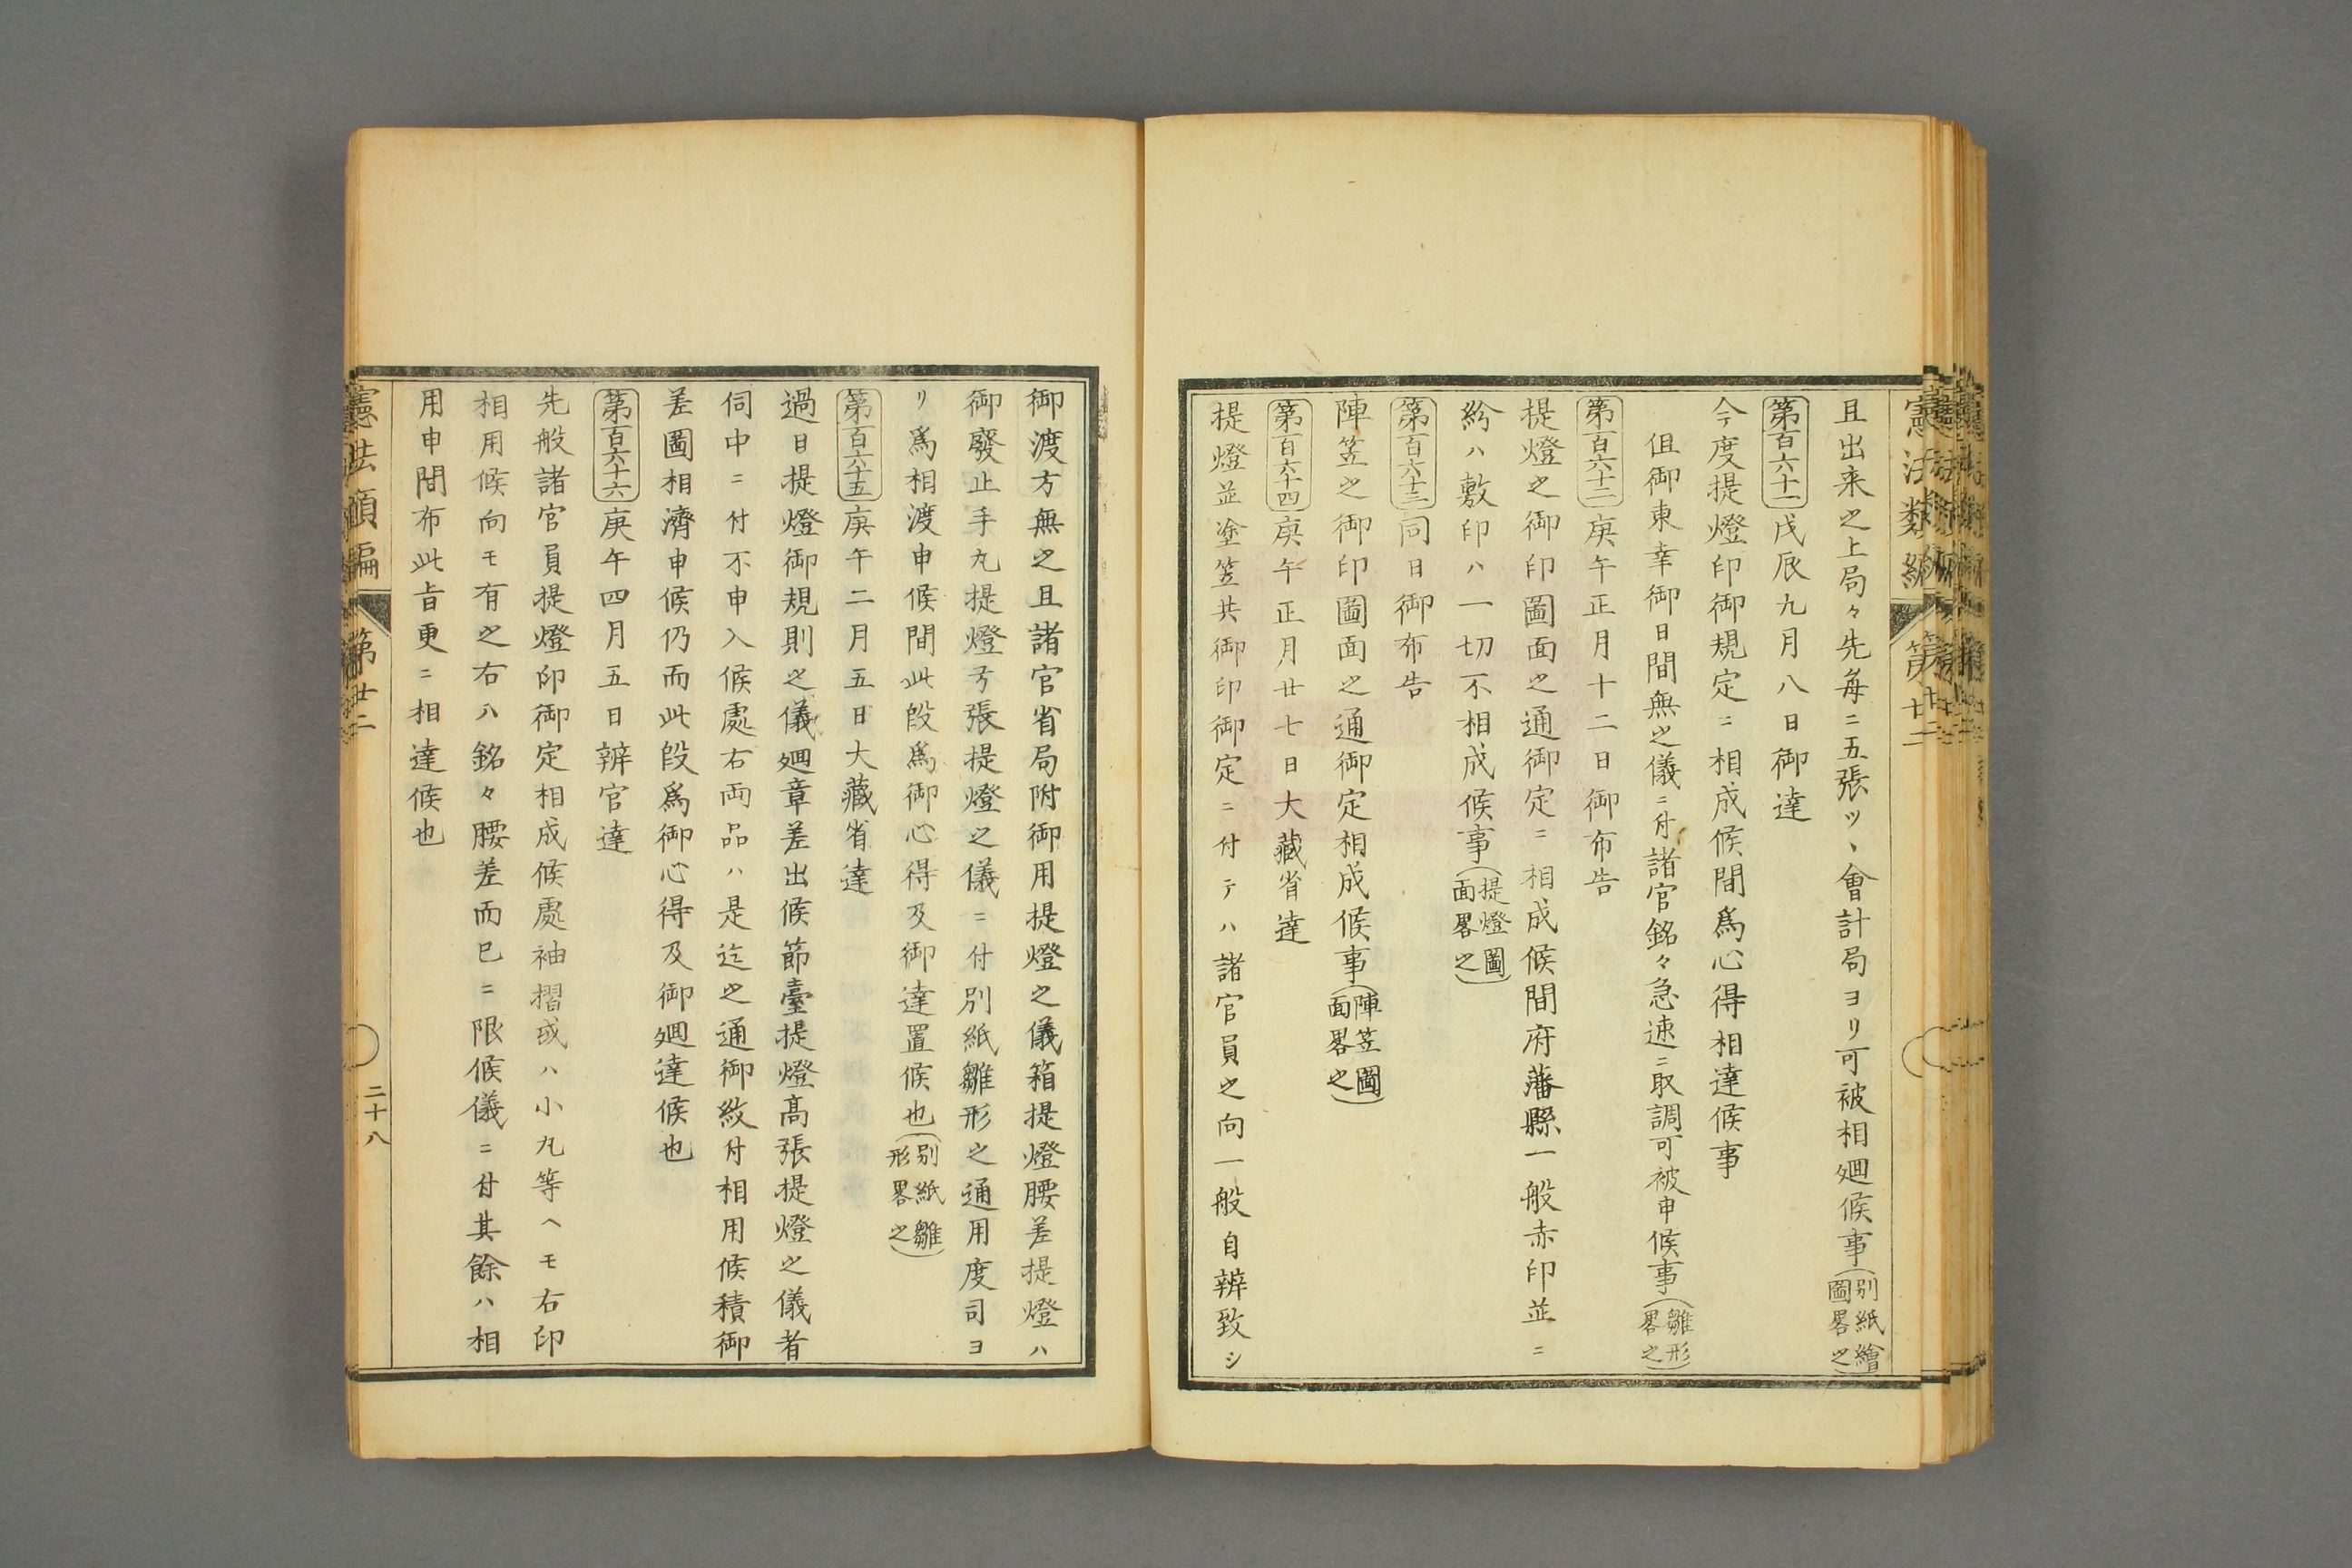 憲法類編 第廿二
且出来之上局々先毎ニ五張ツヽ會計局ヨリ可被相廻候事(別紙繪圖畧之)
第百六十一 戊辰九月八日御達
今度提燈印御規定ニ相成候間爲心得相達候事
但御東幸御日間無之儀ニ付諸官銘々急速ニ取調可被申候事(雛形畧之)
第百六十二 庚午正月十二日御布告
提燈之御印圖面之通御定ニ相成候間府藩縣一般赤印並ニ
紛ハ敷印ハ一切不相成候事(提燈圖面畧之)
第百六十三 同日御布告
陣笠之御印圖面之通御定相成候事(陣笠圖面畧之)
第百六十四 庚午正月廿七日大藏省達
提燈並塗笠共御印御定ニ付テハ諸官員之向一般自辨致シ
御渡方無之且諸官省局附御用提燈之儀箱提燈腰差提燈ハ
御廢止手丸提燈弓張提燈之儀ニ付別紙雛形之通用度司ヨ
リ爲相渡申候間此段爲御心得及御達置候也(別紙雛形畧之)
第百六十五 庚午二月五日大藏省達
過日提燈御規則之儀廻章差出候節臺提燈高張提燈之儀者
伺中ニ付不申入候處右両品ハ是迄之通御紋付相用候積御
差圖相濟申候仍而此段爲御心得及御廻達候也
第百六十六 庚午四月五日辨官達
先般諸官員提燈印御定相成候處袖摺或ハ小丸等ヘモ右印
相用候向モ有之右ハ銘々腰差而巳ニ限候儀ニ付其餘ハ相
用申間布此旨更ニ相達候也
憲法類編 第廿二 二十八